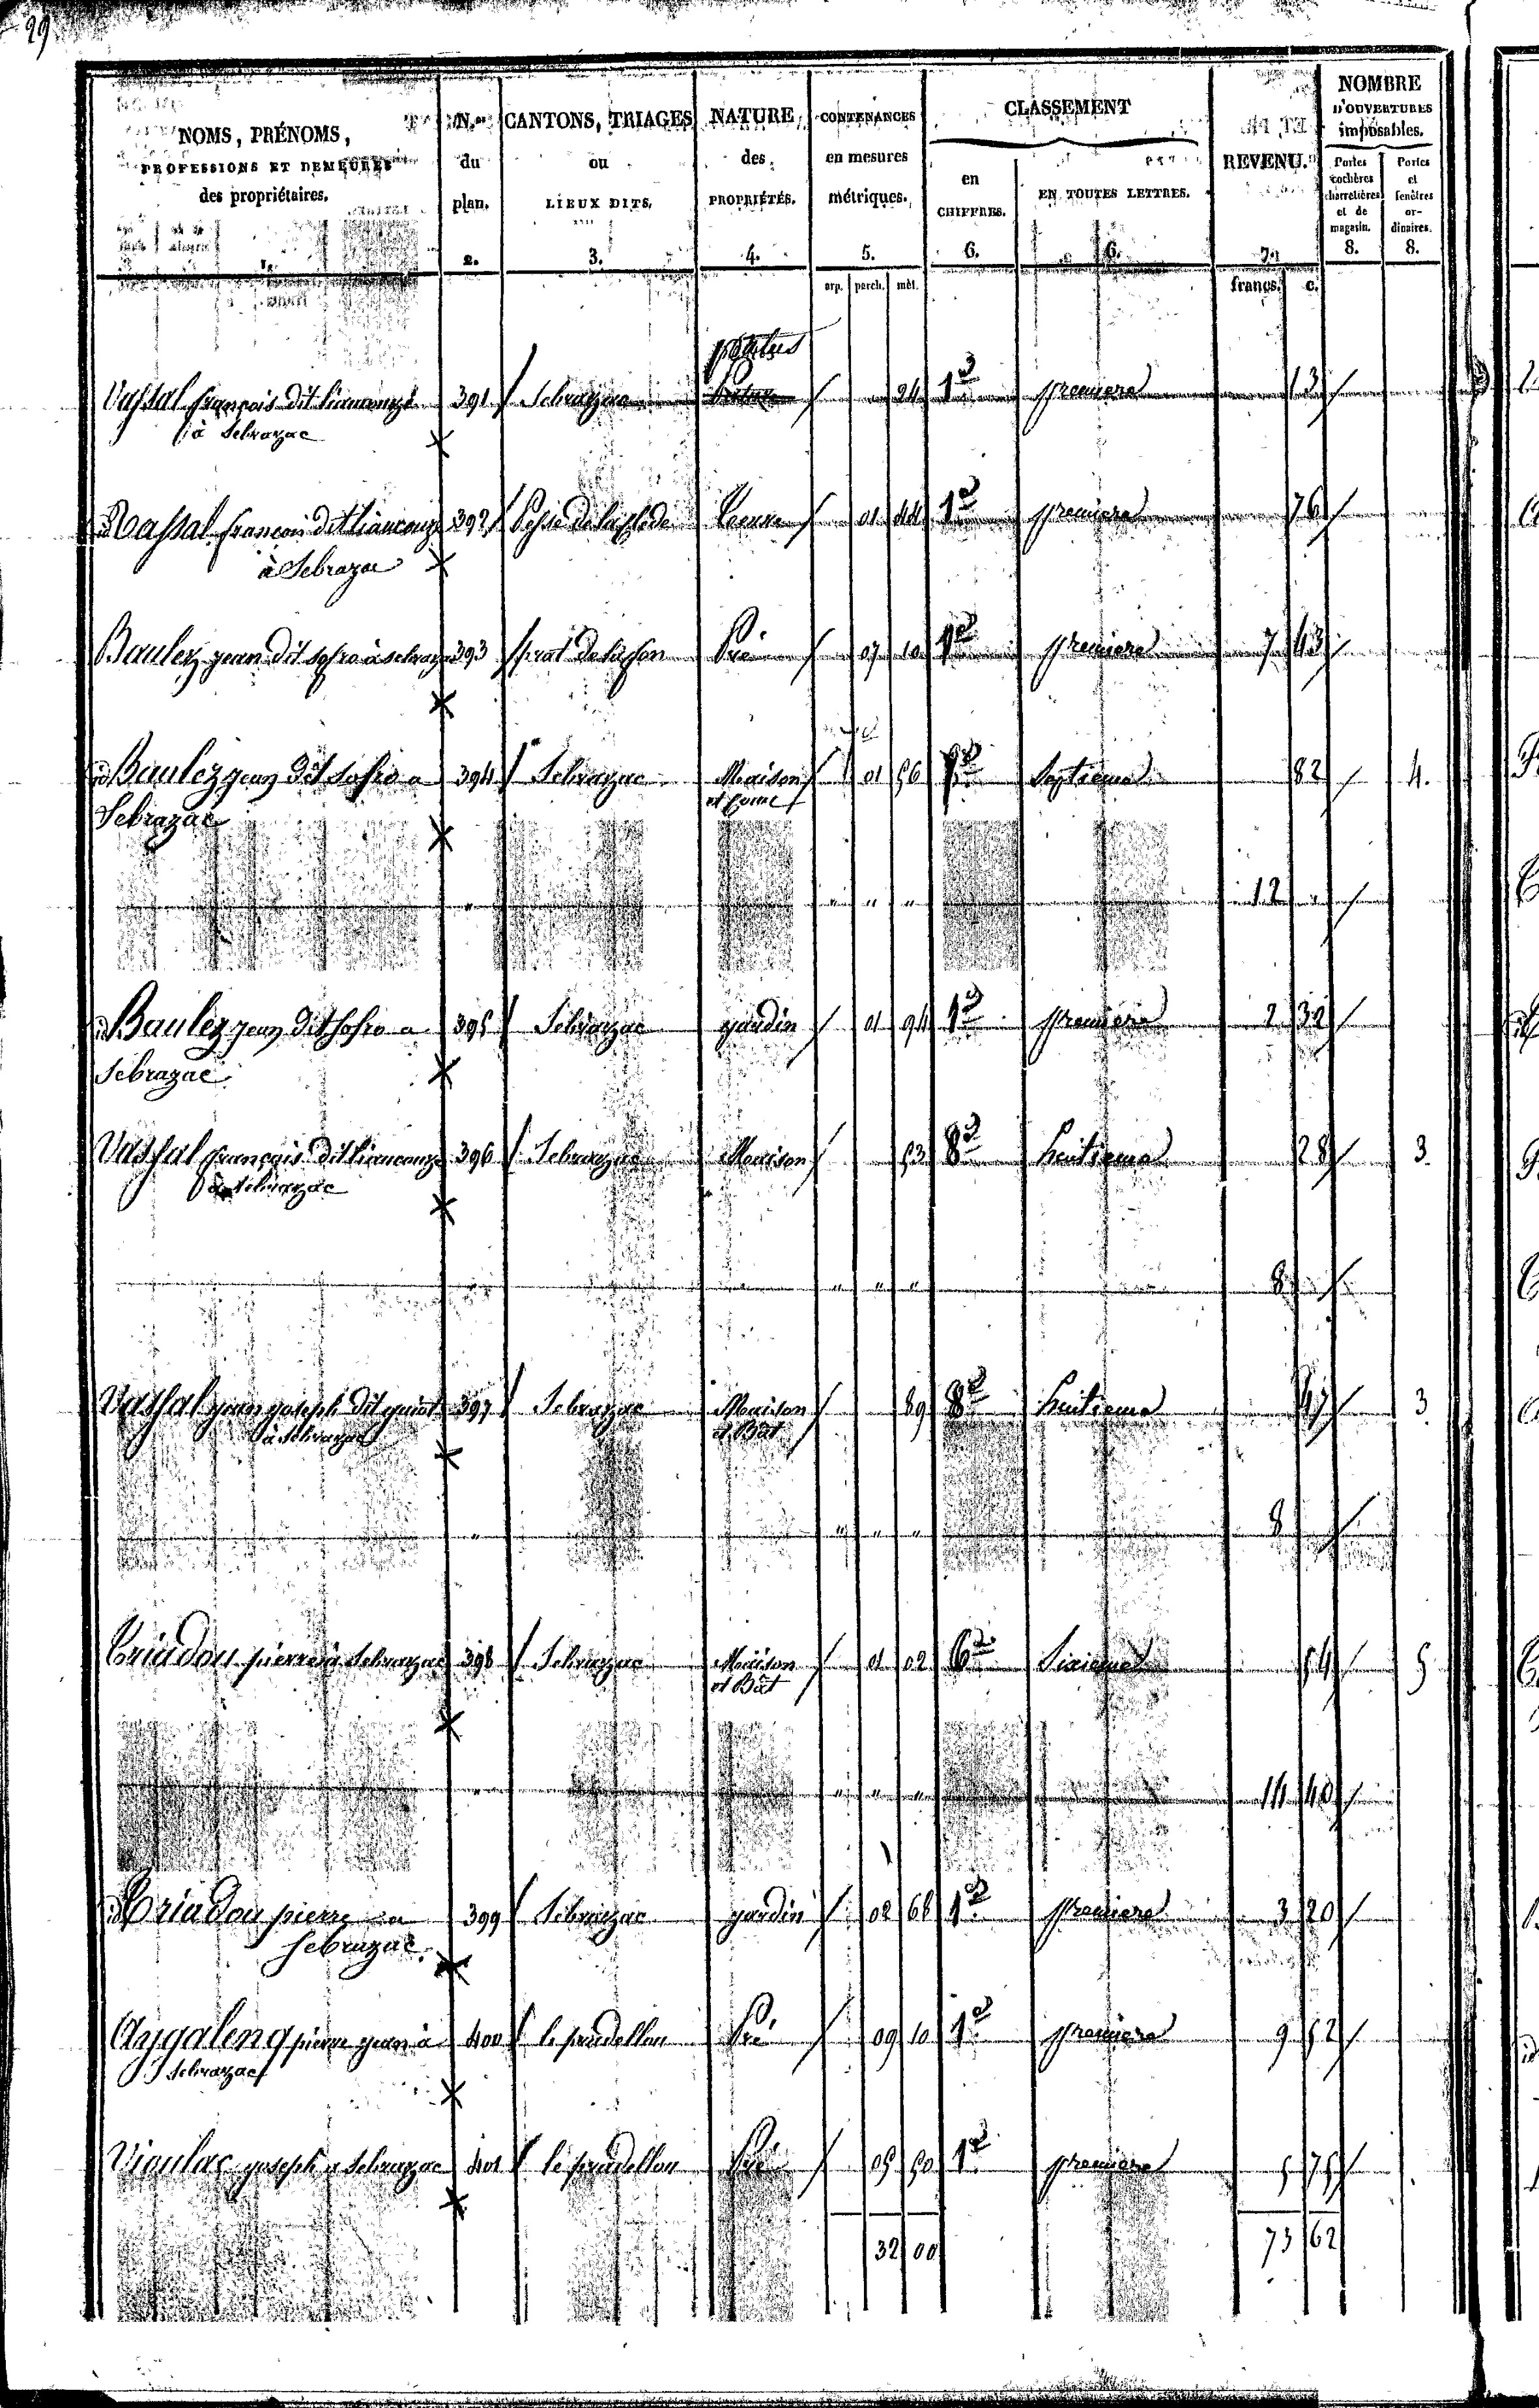 29
NOMS, PRÉNOMS, PROFESSIONS ET DEMEURES des propriétaires. 1.
N.os du plan. 2.
CANTONS, TRIAGES ou LIEUX DITS. 3.
NATURE des PROPRIÉTÉS. 4.
CONTENANCES en mesures métriques. 5.
CLASSEMENT
en CHIFFRES. 6.
EN TOUTES LETTRES. 6.
REVENU. 7.
NOMBRE D'OUVERTURES imposables.
Portes cochères charretières et de magasin. 8.
Portes et fenêtres ordinaires. 8.
arp. perch. mèt. francs. c.
patus
Vassal françois dit 391 Sebrazac 24 1e premiere 13
à Sebrazac
id Vassal françois dit 392 01 44 1e premiere 76
à Sebrazac
Baulez jean dit à Sebrazac 393 prat de la fon Pré 07 10 1e premiere 7 43
id Baulez jean dit a 394 Sebrazac Maison 01 56 7e Septieme 82 4.
Sebrazac et
" " " " 12 "
id Baulez jean dit a 395 Sebrazac jardin 01 94 1e premiere 2 32
Sebrazac
Vassal françois dit 396 Sebrazac Maison 53 8e huitieme 28 3
à Sebrazac
" " " " 8
Vassal jean joseph dit 397 Sebrazac Maison 89 8e huitieme 47 3
à Sebrazac et Bât
" " " " 8
pierre à Sebrazac 398 Sebrazac Maison 01 02 6e Sixieme 54 5
et Bât
" " " " 14 40
id pierre a 399 Sebrazac jardin 02 68 1e premiere 3 20
Sebrazac
Aygaleng pierre jean à 400 le pradellou Pré 09 10 1e premiere 9 52
Sebrazac
Vioulac joseph a Sebrazac 401 le pradellou Pré 05 50 1e premiere 5 75
32 00 73 62